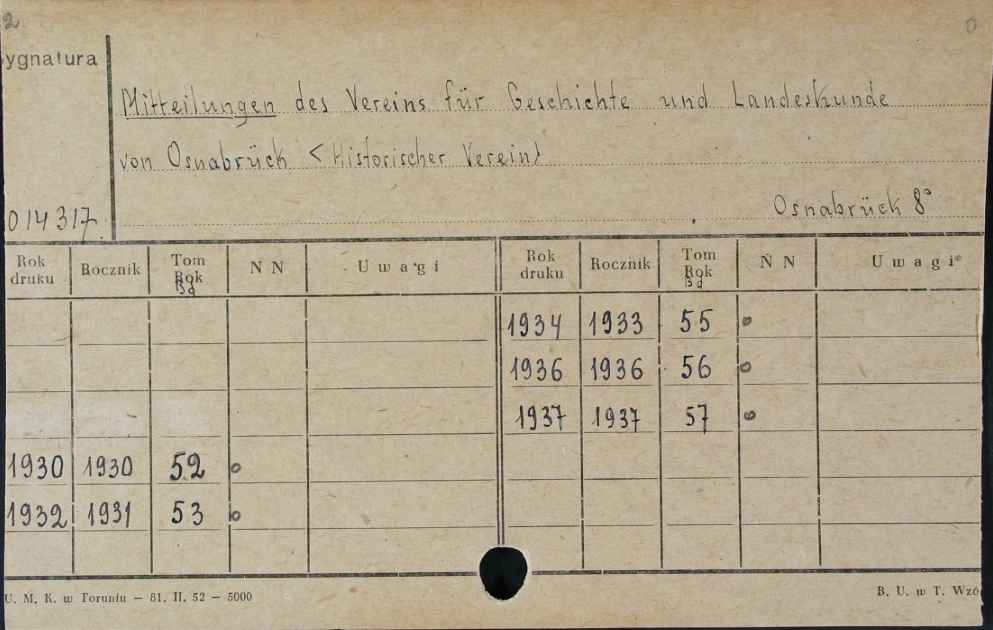 2 0
ygnatura
Mitteilungen des Vereins für Geschichte und Landeskunde
von Osnabrück <Historischer Verein>
014317. Osnabrück 8°
Rok druku Rocznik Tom Rok Bd N N Uwagi Rok druku Rocznik Tom Rok Bd N N Uwagi
1934 1933 55 o
1936 1936 56 o
1937 1937 57 o
1930 1930 52 o
1932 1931 53 o
U. M. K. w Toruniu — 81. II. 52 — 5000 B. U. w T. Wzó